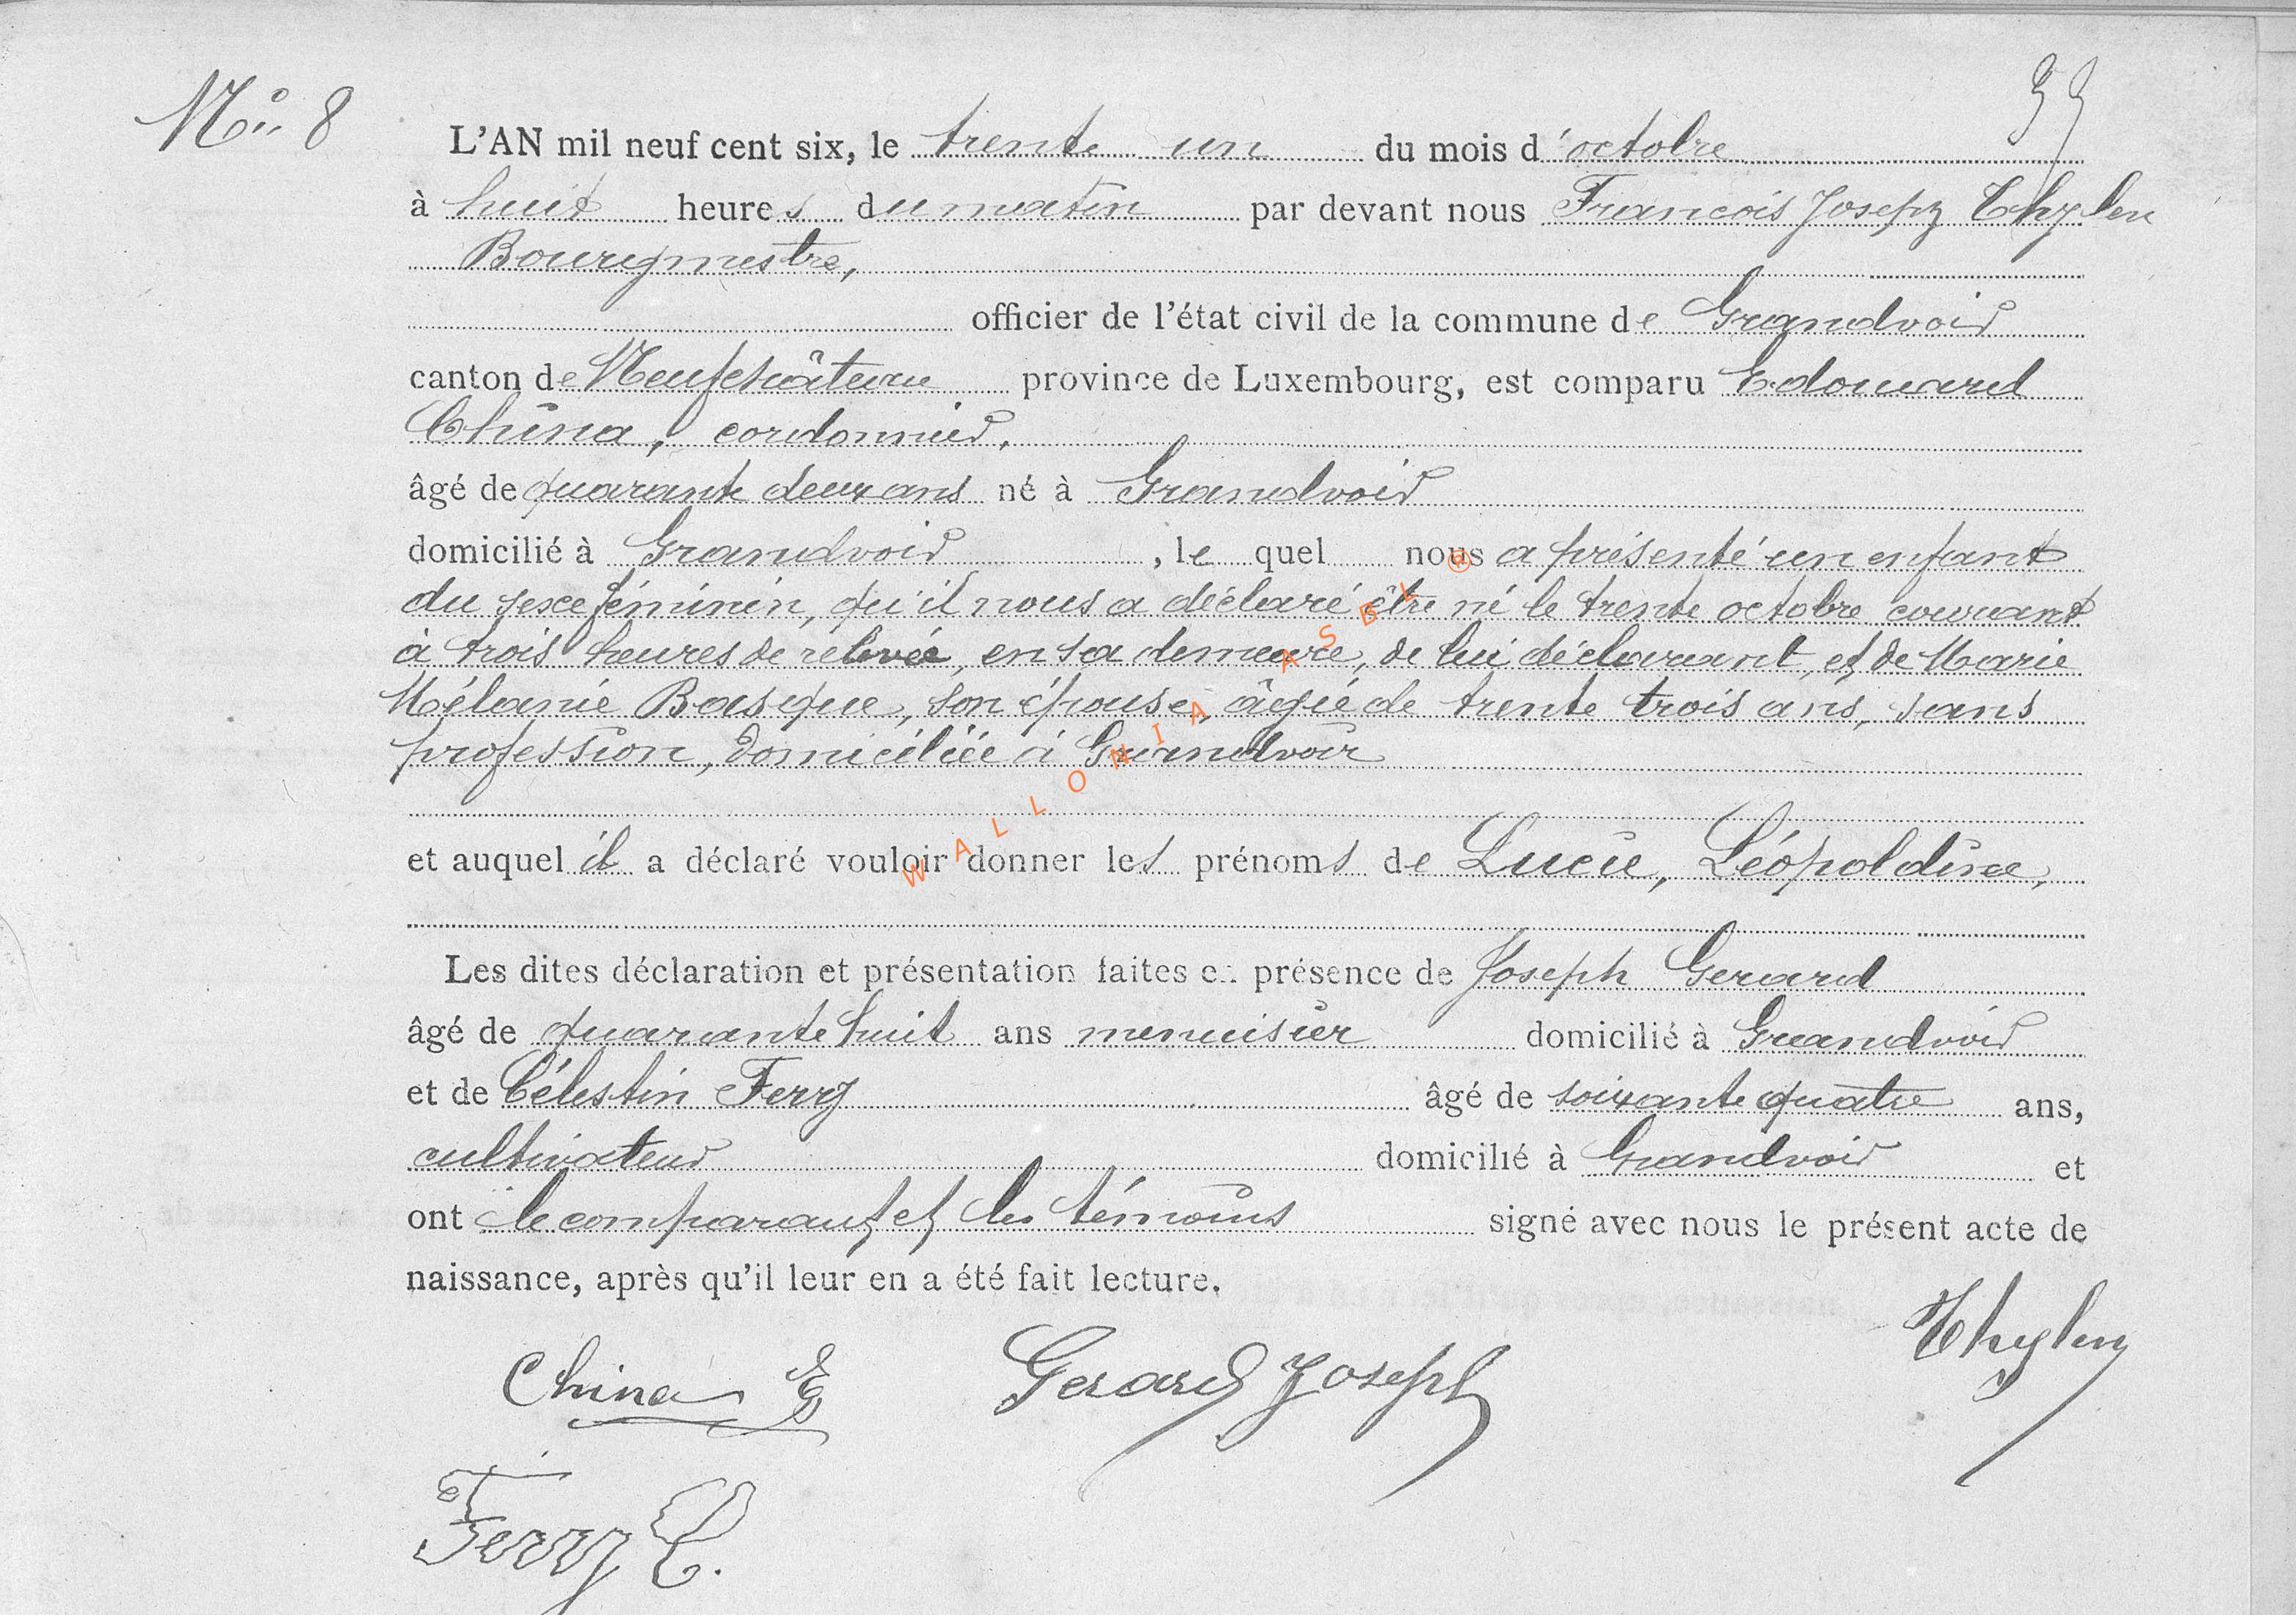 No 8
L'AN mil neuf cent six, le trente un du mois d'octobre
à huit heures du matin par devant nous François Joseph Thylen
Bourgmestre,
officier de l'état civil de la commune de Grandvoir
canton de Neufchâteau province de Luxembourg, est comparu Edouard
China, cordonnier,
âgé de quarante deux ans né à Grandvoir
domicilié à Grandvoir, le quel nous a présenté un enfant
du sexe féminin, qu'il nous a déclaré être né le trente octobre courant
à trois heures de relevée, en sa demeure, de lui déclarant, et de Marie
Mélanie Basque, son épouse, âgée de trente trois ans, sans
profession, domiciliée à Grandvoir
et auquel il a déclaré vouloir donner les prénoms de Lucie, Léopoldine,
Les dites déclaration et présentation faites en présence de Joseph Gerard
âgé de quarante huit ans menuisier domicilié à Grandvoir
et de Célestin Ferry âgé de soixante quatre ans,
cultivateur domicilié à Grandvoir et
ont le comparant et les témoins signé avec nous le présent acte de
naissance, après qu'il leur en a été fait lecture.
China E Gerard Joseph Thylen
Ferry C.
WALLONIA ASBL ®